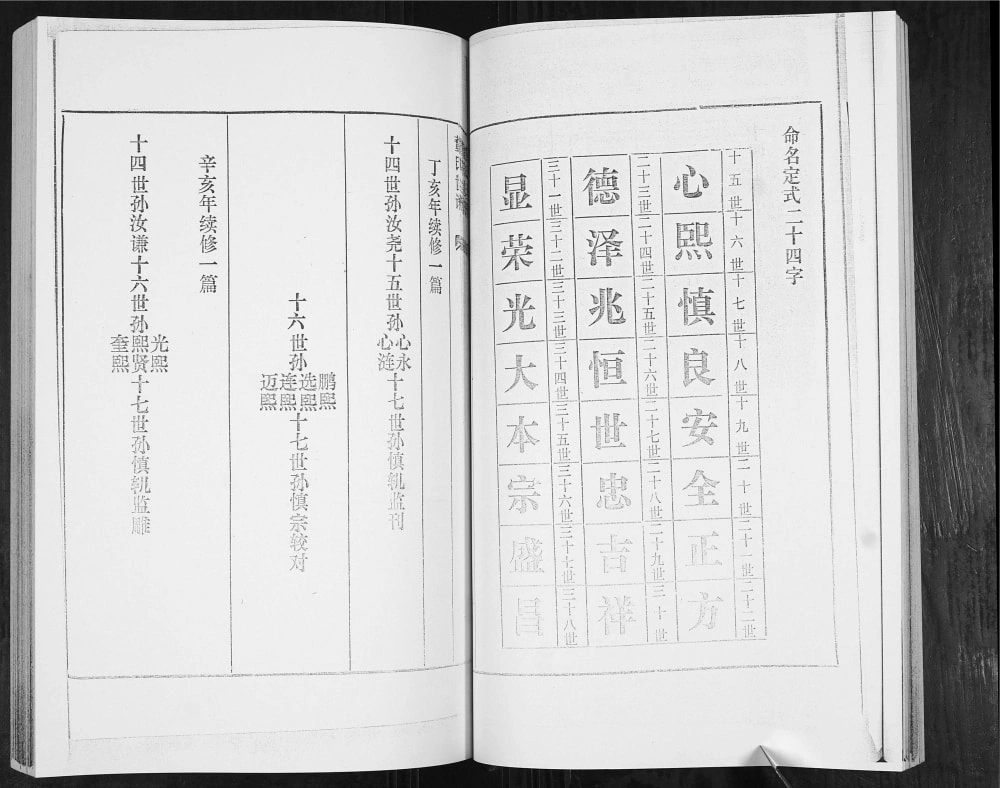 命名定式二十四字
十五世 十六世 十七世 十八世 十九世 二十世 二十一世 二十二世
心 熙 慎 良 安 全 正 方
二十三世 二十四世 二十五世 二十六世 二十七世 二十八世 二十九世 三十世
德 泽 兆 恒 世 忠 吉 祥
三十一世 三十二世 三十三世 三十四世 三十五世 三十六世 三十七世 三十八世
显 荣 光 大 本 宗 盛 昌
丁亥年续修一篇
十四世孙汝尧十五世孙心永心涟十七世孙慎轨监刊
十六世孙鹏熙选熙连熙迈熙十七世孙慎宗较对
辛亥年续修一篇
十四世孙汝谦十六世孙光熙熙贤奎熙十七世孙慎轨监雕